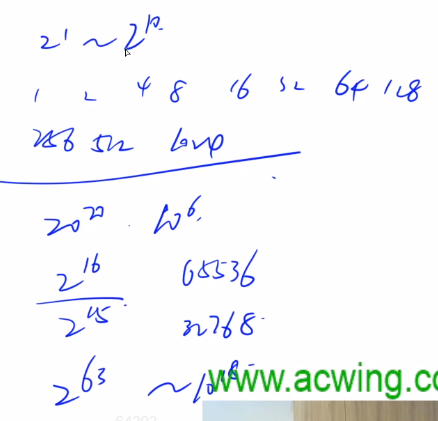 2^1 ~ 2^10
1 2 4 8 16 32 64 128
256 512 1024
20^20 10^6
2^16 65536
2^15 32768
2^63 ~10^18
www.acwing.com